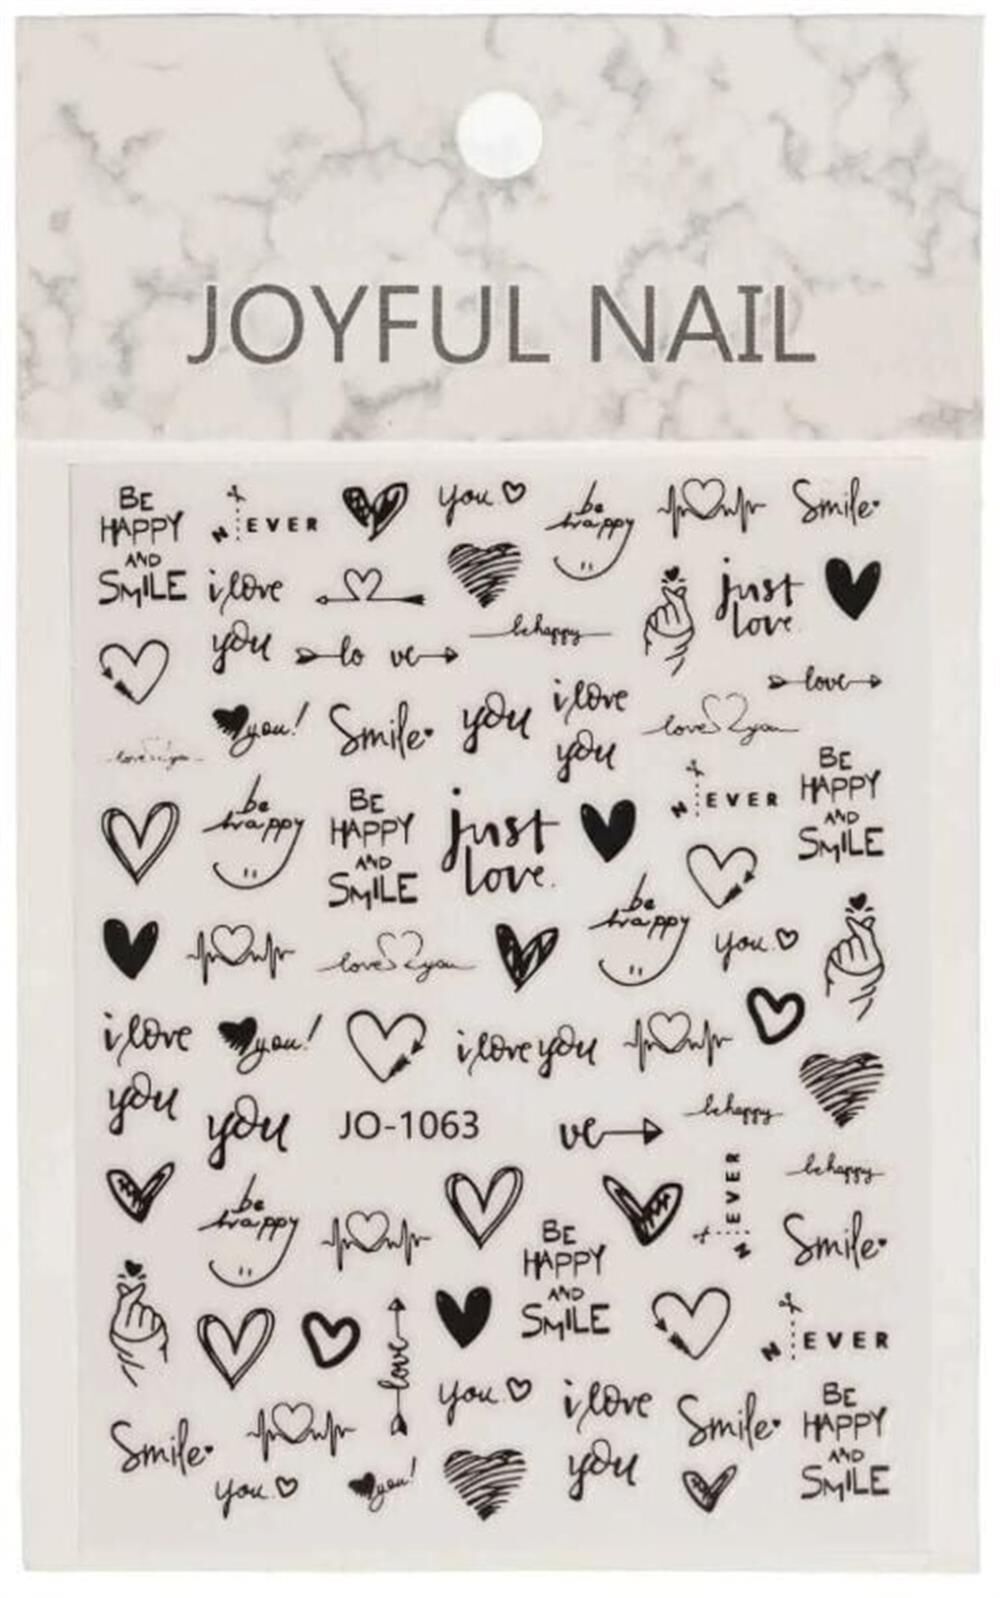 JOYFUL NAIL
BE
HAPPY
AND
SMILE
NEVER
you
be
happy
Smile
i love
you
just
love
be happy
lo ve
love
you!
Smile
you
i love
you
love you
love you
NEVER
BE
HAPPY
AND
SMILE
be
happy
BE
HAPPY
AND
SMILE
just
love
be
happy
you
love you
i love
you
you!
i love you
you
JO-1063
ve
be happy
be happy
NEVER
be
happy
Smile
BE
HAPPY
AND
SMILE
love
NEVER
you
i love
you
Smile
BE
HAPPY
AND
SMILE
Smile
you
you!